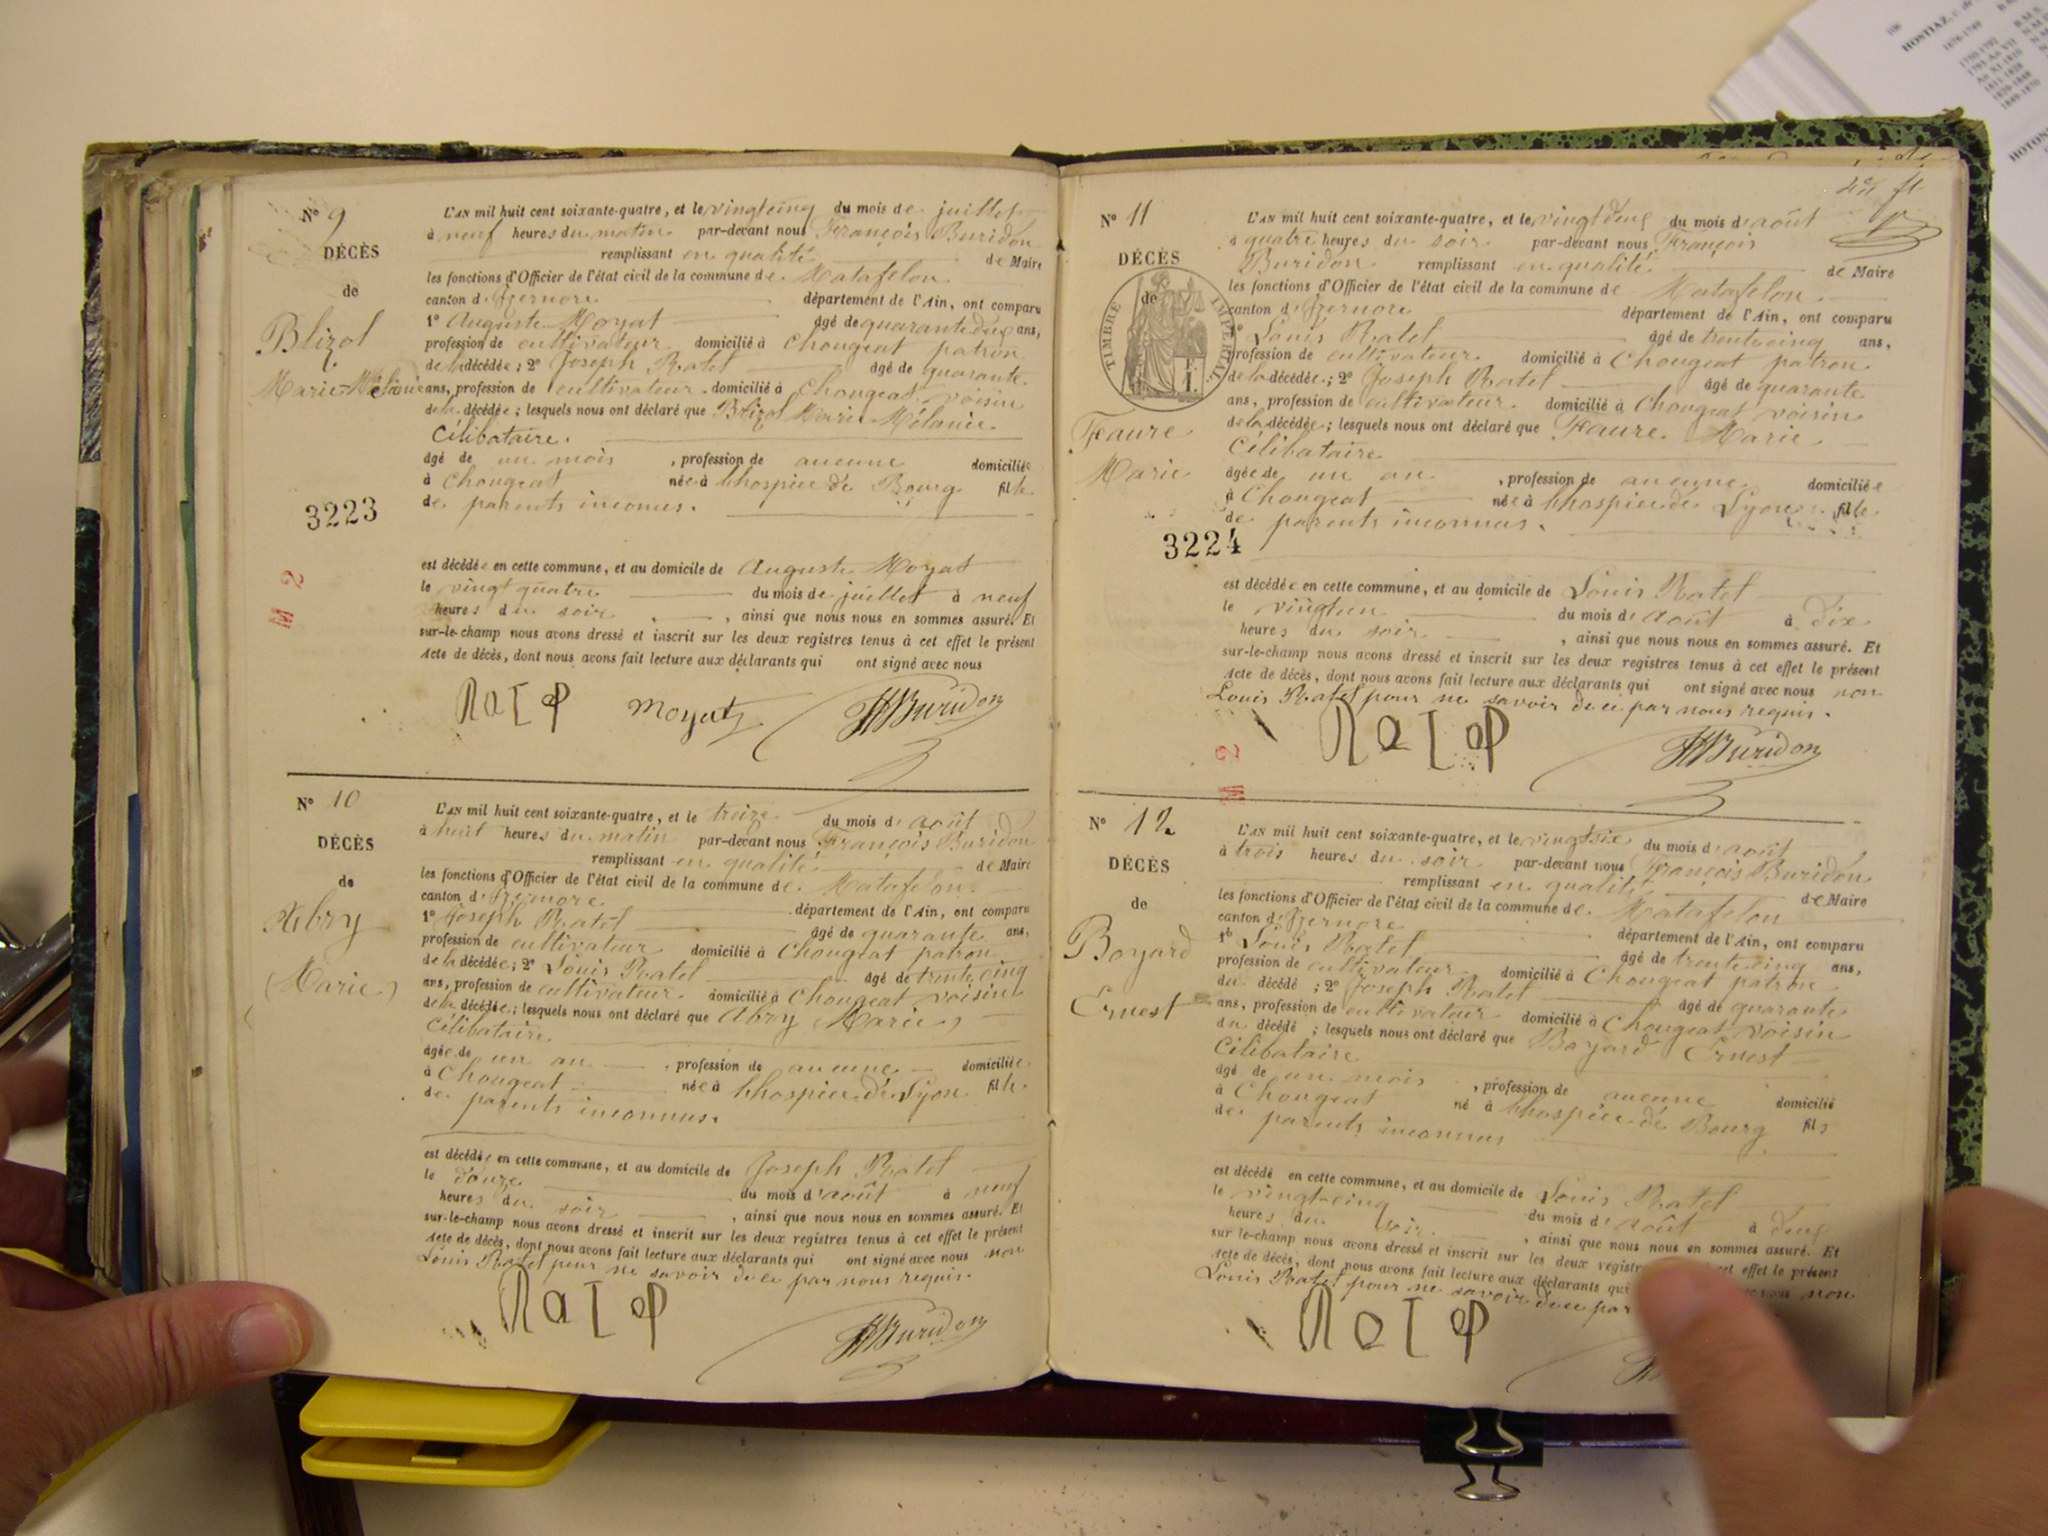 N° 9
DÉCÈS
de
Blizot
Marie-Mélanie
3223
M 2
L'AN mil huit cent soixante-quatre, et le vingt cinq du mois de juillet
à neuf heures du matin par-devant nous François Buridon
remplissant en qualité de Maire
les fonctions d'Officier de l'état civil de la commune de Matafelon
canton d'Izernore département de l'Ain, ont comparu
1° Auguste Moyat âgé de quarante deux ans,
profession de cultivateur domicilié à Chougeat patron
de la décédée ; 2° Joseph Ratel âgé de quarante
ans, profession de cultivateur domicilié à Chougeat voisin
de la décédée ; lesquels nous ont déclaré que Blizot Marie Mélanie
Célibataire.
âgé de un mois , profession de aucune domiciliée
à Chougeat née à l'hospice de Bourg fille
de parents inconnus.
est décédée en cette commune, et au domicile de Auguste Moyat
le vingt quatre du mois de juillet à neuf
heures du soir , ainsi que nous nous en sommes assuré. Et
sur-le-champ nous avons dressé et inscrit sur les deux registres tenus à cet effet le présent
Acte de décès, dont nous avons fait lecture aux déclarants qui ont signé avec nous
Moyat Buridon
N° 10
DÉCÈS
de
Abry
Marie
L'AN mil huit cent soixante-quatre, et le treize du mois d'août
à huit heures du matin par-devant nous François Buridon
remplissant en qualité de Maire
les fonctions d'Officier de l'état civil de la commune de Matafelon
canton d'Izernore département de l'Ain, ont comparu
1° Joseph Ratel âgé de quarante ans,
profession de cultivateur domicilié à Chougeat patron
de la décédée ; 2° Louis Ratel âgé de trente cinq
ans, profession de cultivateur domicilié à Chougeat voisin
de la décédée ; lesquels nous ont déclaré que Abry Marie
Célibataire
âgée de un an , profession de aucune domiciliée
à Chougeat née à l'hospice de Lyon fille
de parents inconnus.
est décédée en cette commune, et au domicile de Joseph Ratel
le douze du mois d'août à neuf
heures du soir , ainsi que nous nous en sommes assuré. Et
sur-le-champ nous avons dressé et inscrit sur les deux registres tenus à cet effet le présent
Acte de décès, dont nous avons fait lecture aux déclarants qui ont signé avec nous non
Louis Ratel pour ne savoir de ce par nous requis.
Buridon
N° 11
DÉCÈS
de
TIMBRE IMPÉRIAL
Faure
Marie
3224
M 2
L'AN mil huit cent soixante-quatre, et le vingt deux du mois d'août
à quatre heures du soir par-devant nous François
Buridon remplissant en qualité de Maire
les fonctions d'Officier de l'état civil de la commune de Matafelon
canton d'Izernore département de l'Ain, ont comparu
Louis Ratel âgé de trente cinq ans,
profession de cultivateur domicilié à Chougeat patron
de la décédée ; 2° Joseph Ratel âgé de quarante
ans, profession de cultivateur domicilié à Chougeat voisin
de la décédée ; lesquels nous ont déclaré que Faure Marie
Célibataire
âgée de un an , profession de aucune domiciliée
à Chougeat née à l'hospice de Lyon fille
de parents inconnus.
est décédée en cette commune, et au domicile de Louis Ratel
le vingt un du mois d'août à dix
heures du soir , ainsi que nous nous en sommes assuré. Et
sur-le-champ nous avons dressé et inscrit sur les deux registres tenus à cet effet le présent
Acte de décès, dont nous avons fait lecture aux déclarants qui ont signé avec nous non
Louis Ratel pour ne savoir de ce par nous requis.
Buridon
N° 12
DÉCÈS
de
Boyard
Ernest
L'AN mil huit cent soixante-quatre, et le vingt six du mois d'août
à trois heures du soir par-devant nous François Buridon
remplissant en qualité de Maire
les fonctions d'Officier de l'état civil de la commune de Matafelon
canton d'Izernore département de l'Ain, ont comparu
1° Louis Ratel âgé de trente cinq ans,
profession de cultivateur domicilié à Chougeat patron
du décédé ; 2° Joseph Ratel âgé de quarante
ans, profession de cultivateur domicilié à Chougeat voisin
du décédé ; lesquels nous ont déclaré que Boyard Ernest
Célibataire
âgé de un mois , profession de aucune domicilié
à Chougeat né à l'hospice de Bourg fils
de parents inconnus
est décédé en cette commune, et au domicile de Louis Ratel
le vingt-cinq du mois d'août à deux
heures du soir , ainsi que nous nous en sommes assuré. Et
sur le-champ nous avons dressé et inscrit sur les deux registres cet effet le présent
Acte de décès, dont nous avons fait lecture aux déclarants qui non
Louis Ratel pour ne savoir de ce par
HOSTIAZ